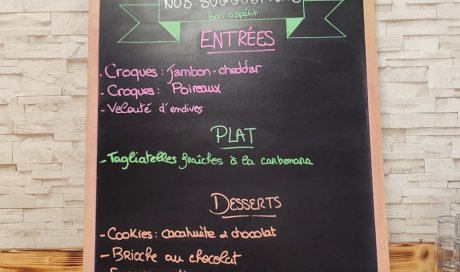 NOS SUGGESTIONS
Bon appétit
ENTRÉES
- Croques : Jambon-cheddar
- Croques : Poireaux
- Velouté d'endives
PLAT
- Tagliatelles fraîches à la carbonara
DESSERTS
- Cookies : cacahuète et chocolat
- Brioche au chocolat